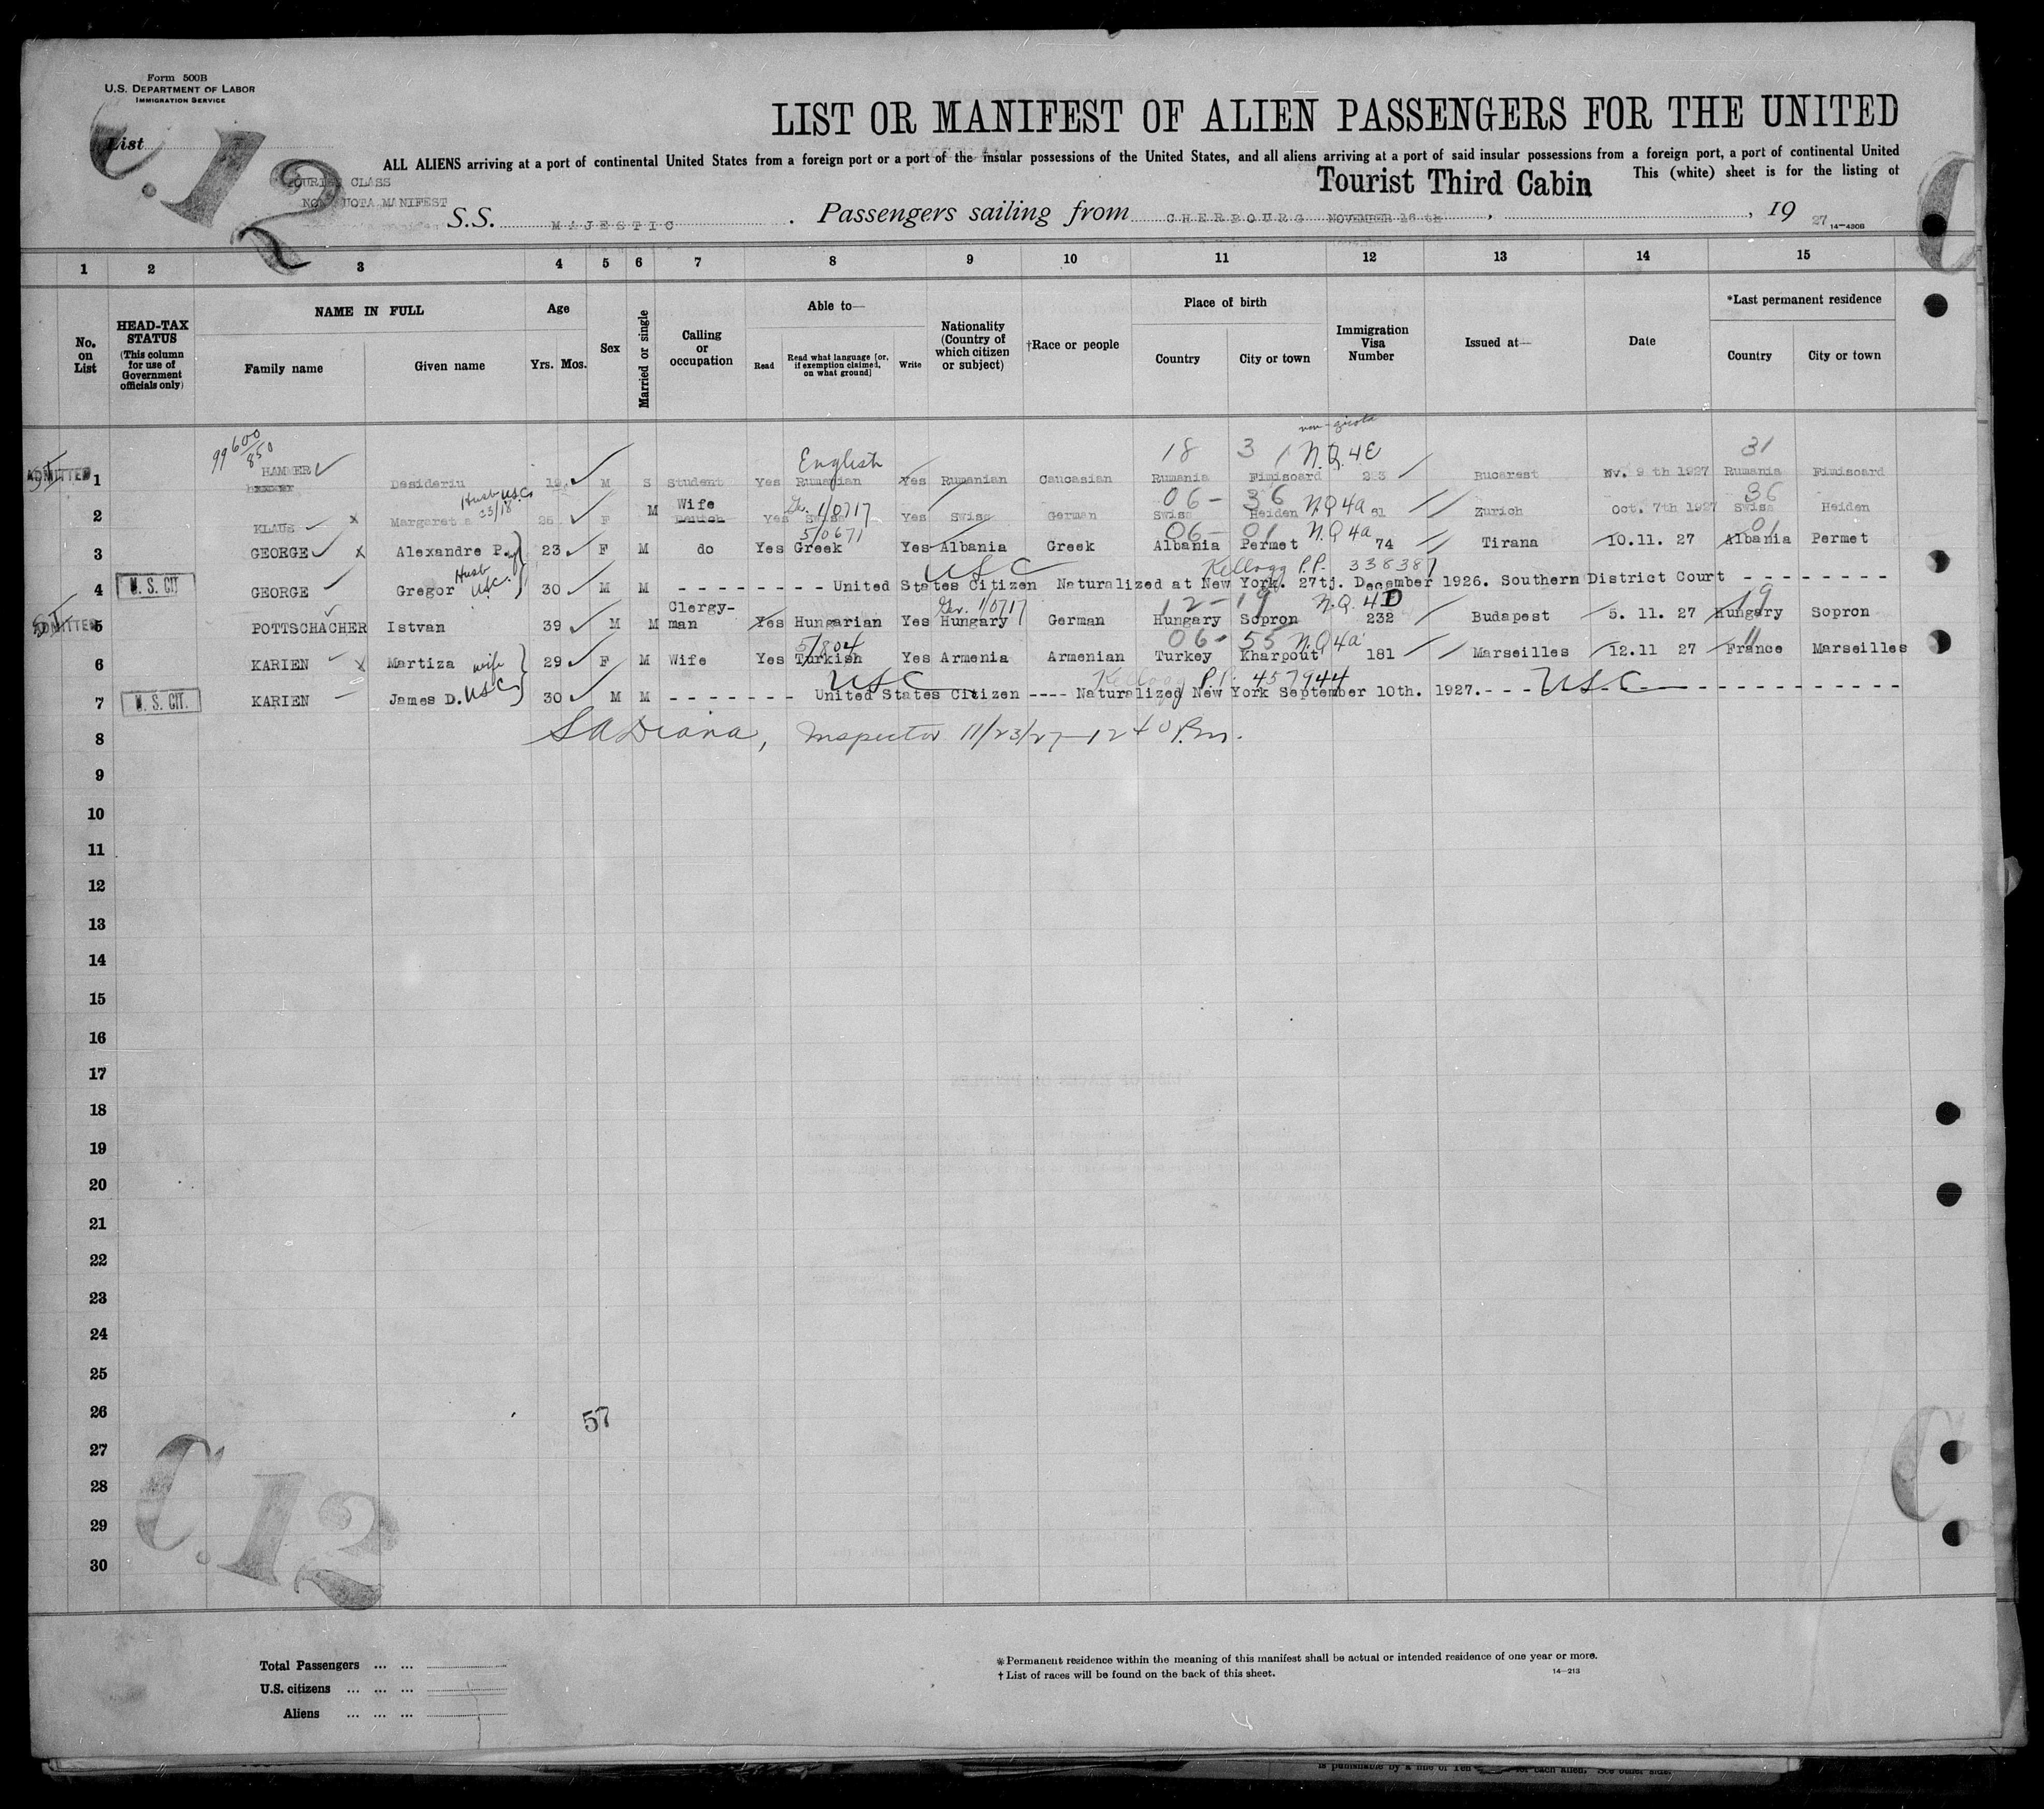 Form 500B
U.S. DEPARTMENT OF LABOR
IMMIGRATION SERVICE
List
C.12
LIST OR MANIFEST OF ALIEN PASSENGERS FOR THE UNITED
ALL ALIENS arriving at a port of continental United States from a foreign port or a port of the insular possessions of the United States, and all aliens arriving at a port of said insular possessions from a foreign port, a port of continental United
Tourist Third Cabin This (white) sheet is for the listing of
TOURIST CLASS
NON QUOTA MANIFEST
S.S. MAJESTIC . Passengers sailing from CHERBOURG NOVEMBER 16 th , , 19 27
14—430B
1 2 3 4 5 6 7 8 9 10 11 12 13 14 15
No. on List
HEAD-TAX STATUS (This column for use of Government officials only)
NAME IN FULL
Family name Given name
Age
Yrs. Mos.
Sex
Married or single
Calling or occupation
Able to—
Read Read what language [or, if exemption claimed, on what ground] Write
Nationality (Country of which citizen or subject)
†Race or people
Place of birth
Country City or town
Immigration Visa Number
Issued at—
Date
*Last permanent residence
Country City or town
99600/850 English 18 3 1 non-quota N.Q. 4E 31
ADMITTED 1 HAMMER Desideriu M S Student Yes Rumanian Yes Rumanian Caucasian Rumania Fimiscard Bucarest Nv. 9 th 1927 Rumania Fimiscard
Husb USC 23/18 Wife Gr. 1/0717 06- 36 N.Q 4a 36
2 KLAUS x Margaret F M Yes Swiss Yes Swiss German Swiss Heiden 61 Zurich Oct. 7th 1927 Swiss Heiden
5/0671 06- 01 N.Q 4a 01
3 GEORGE x Alexandre P. 23 F M do Yes Greek Yes Albania Greek Albania Permet 74 Tirana 10.11. 27 Albania Permet
Husb USC. USC Kellogg P.P. 338387
U. S. CIT 4 GEORGE Gregor 30 M M - - - - - - - - United States Citizen Naturalized at New York. 27tj. December 1926. Southern District Court - - - - - - - -
Ger. 1/0717 12-19 N.Q. 4D 19
ADMITTED 5 POTTSCHACHER Istvan 39 M M Clergy-man Yes Hungarian Yes Hungary German Hungary Sopron 232 Budapest 5. 11. 27 Hungary Sopron
5/804 06- 55 N.Q 4a 11
6 KARIEN x Martiza wife 29 F M Wife Yes Turkish Yes Armenia Armenian Turkey Kharpout 181 Marseilles 12.11 27 France Marseilles
USC Kellogg P.P. 457944 USC
U. S. CIT. 7 KARIEN James D. USC 30 M M - - - - - - - United States Citizen ---- Naturalized New York September 10th. 1927.- - - - - - - - - - -
8 SADiana, Inspector 11/23/27—12 40 P.m.
9
10
11
12
13
14
15
16
17
18
19
20
21
22
23
24
25
26 57
27
28
29
30
C.12
Total Passengers ... ...
U.S. citizens ... ... ...
Aliens ... ... ...
* Permanent residence within the meaning of this manifest shall be actual or intended residence of one year or more.
† List of races will be found on the back of this sheet. 14—213
4
is punishable by a fine of Ten for each alien. See other side.